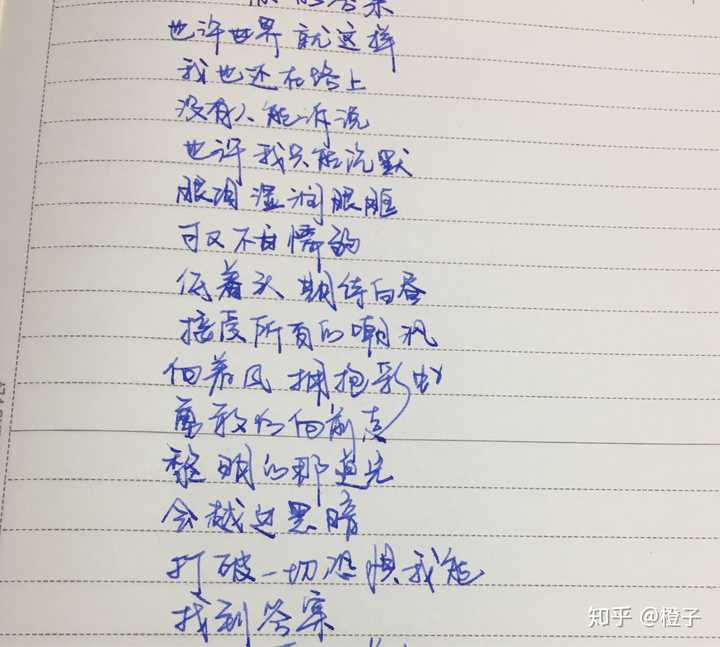 也许世界就这样
我也还在路上
没有人能诉说
也许我只能沉默
眼泪湿润眼眶
可又不甘懦弱
低着头 期待白昼
接受所有的嘲讽
向着风 拥抱彩虹
勇敢的向前走
黎明的那道光
会越过黑暗
打破一切恐惧我能
找到答案
知乎 @橙子